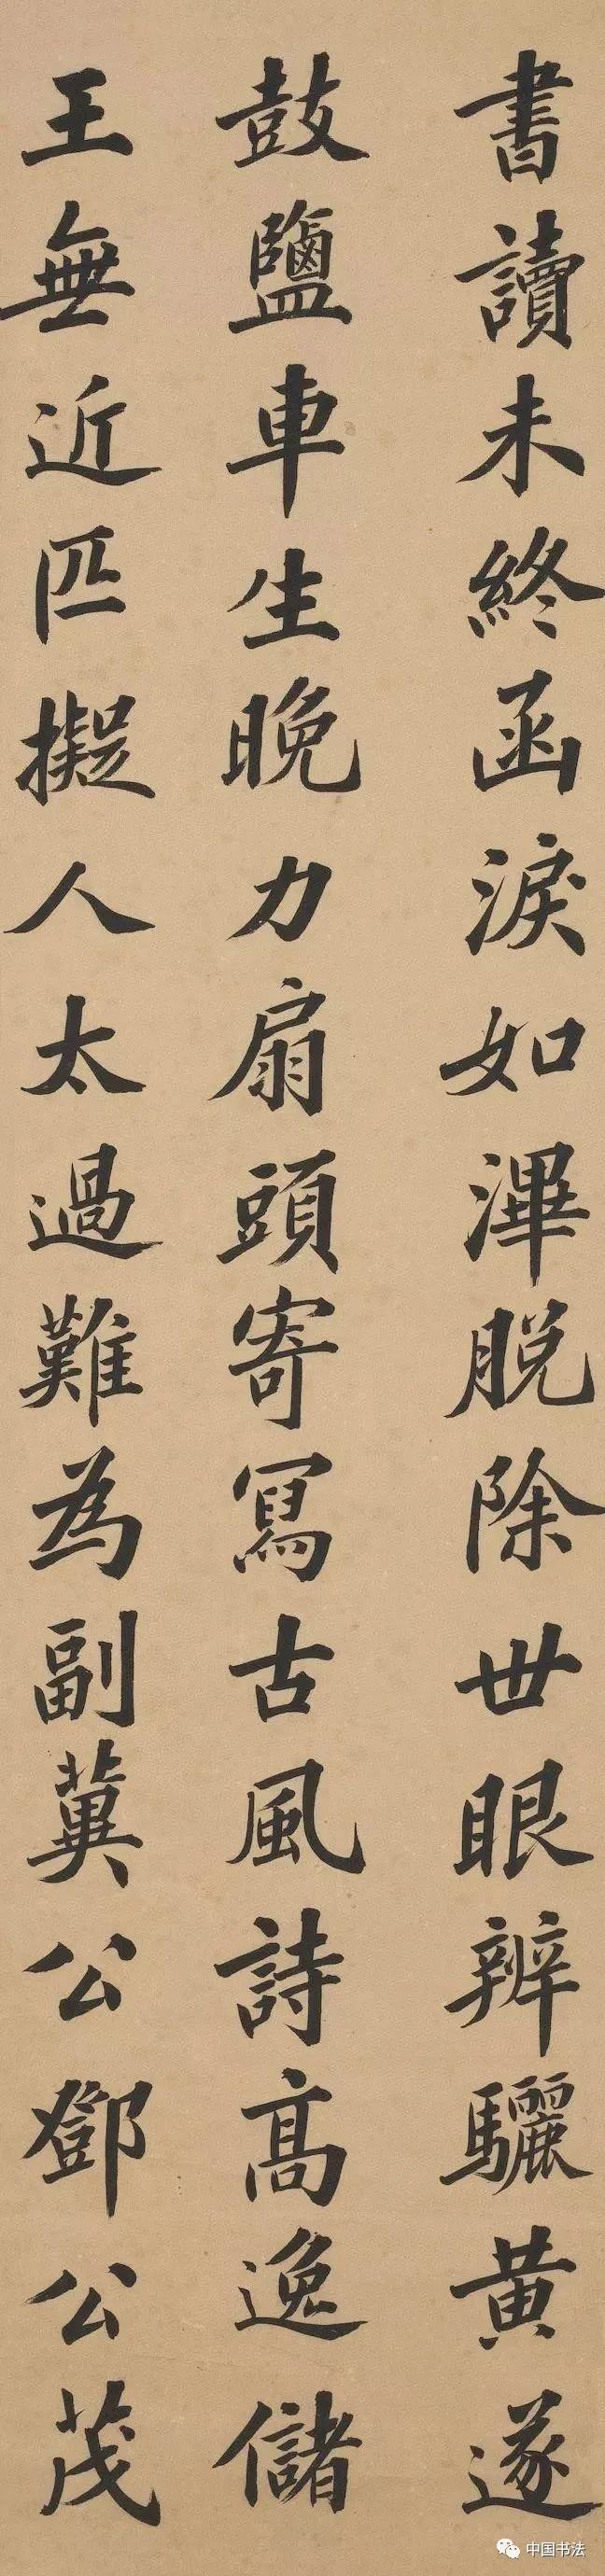 書讀未終函淚如滭脫除世眼辨驪黃遂
鼓鹽車生晚力扇頭寄寫古風詩高逸儲
王無近匹擬人太過難為副冀公鄧公茂
中国书法